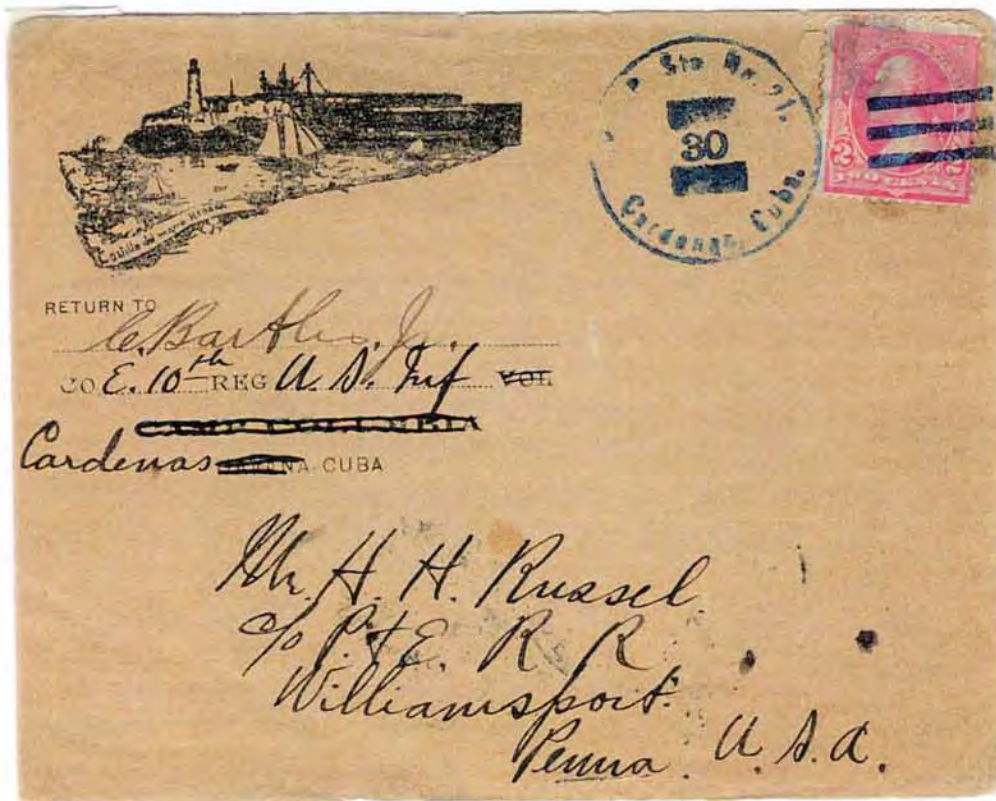 Castillo del Morro Habana
Sta No. 21.
30
Cardenas, Cuba.
TWO CENTS
2 2
RETURN TO
C. Bartles. Jr.
CO E. 10th REG U. S. Inf VOL
CAMP COLUMBIA
Cardenas HAVANA CUBA
Mr H. H. Russel.
c/o P. & E. R R
Williamsport.
Penna. U. S. A.